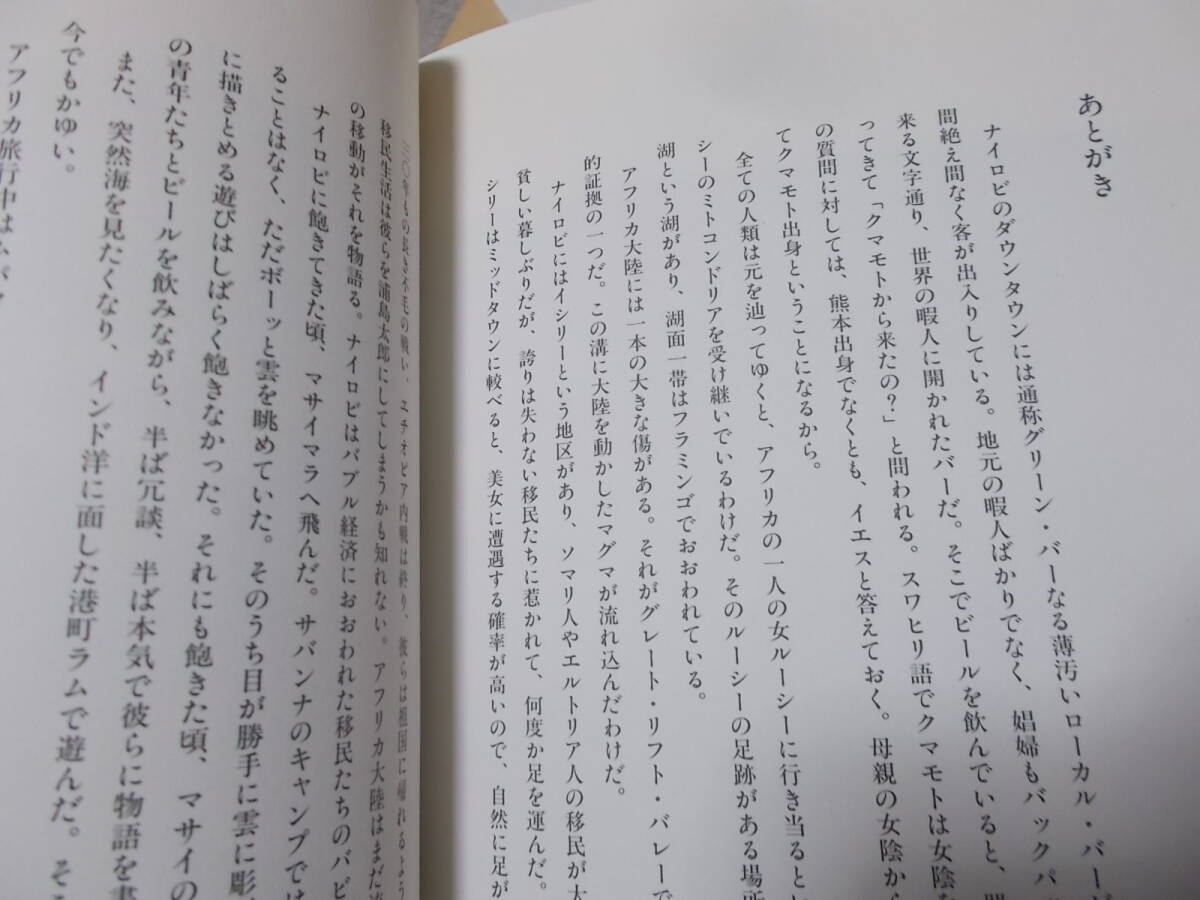 あとがき
ナイロビのダウンタウンには通称グリーン・バーなる薄汚いローカル・バーが
間絶え間なく客が出入りしている。地元の暇人ばかりでなく、娼婦もバックパ
来る文字通り、世界の暇人に開かれたバーだ。そこでビールを飲んでいると、
ってきて「クマモトから来たの?」と問われる。スワヒリ語でクマモトは女陰な
の質問に対しては、熊本出身でなくとも、イエスと答えておく。母親の女陰から
てクマモト出身ということになるから。
全ての人類は元を辿ってゆくと、アフリカの一人の女ルーシーに行き当ると
シーのミトコンドリアを受け継いでいるわけだ。そのルーシーの足跡がある場所
湖という湖があり、湖面一帯はフラミンゴでおおわれている。
アフリカ大陸には一本の大きな傷がある。それがグレート・リフト・バレーで
的証拠の一つだ。この溝に大陸を動かしたマグマが流れ込んだわけだ。
ナイロビにはイシリーという地区があり、ソマリ人やエルトリア人の移民が大
貧しい暮しぶりだが、誇りは失わない移民たちに惹かれて、何度か足を運んだ。
シリーはミッドタウンに較べると、美女に遭遇する確率が高いので、自然に足が
三〇年もの長き不毛の戦い、エチオピア内戦は終り、彼らは祖国に帰れるよう
移民生活は彼らを浦島太郎にしてしまうかも知れない。アフリカ大陸はまだ
の移動がそれを物語る。ナイロビはバブル経済におおわれた移民たちのバビ
ナイロビに飽きてきた頃、マサイマラへ飛んだ。サバンナのキャンプでは
ることはなく、ただボーッと雲を眺めていた。そのうち目が勝手に雲に彫
に描きとめる遊びはしばらく飽きなかった。それにも飽きた頃、マサイの
の青年たちとビールを飲みながら、半ば冗談、半ば本気で彼らに物語を書
また、突然海を見たくなり、インド洋に面した港町ラムで遊んだ。そ
今でもかゆい。
アフリカ旅行中は